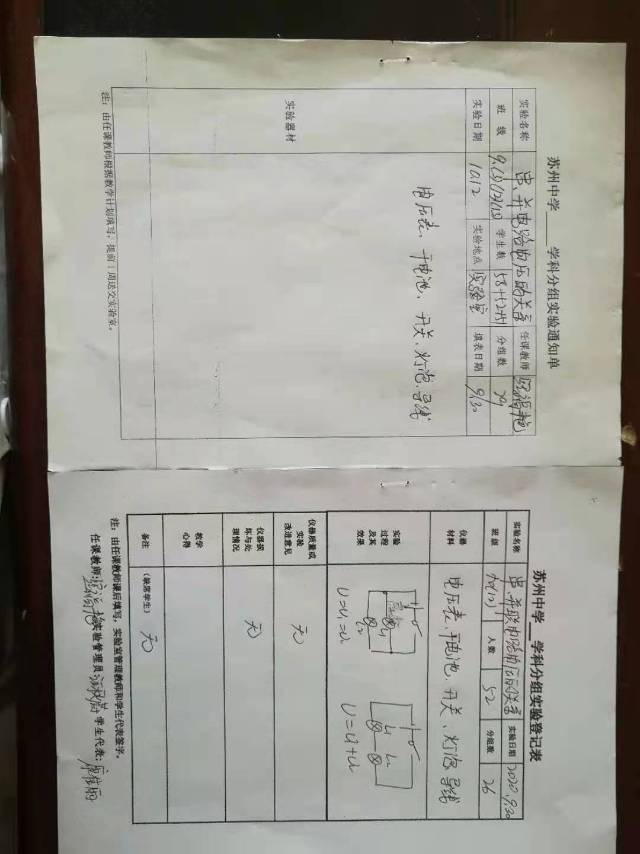 苏州中学____学科分组实验通知单
实验名称 串、并电路电压的关系 任课教师
班 级 学生数 分组数
实验日期 10.12 实验地点 实验室 填表日期 9.30
实验器材 电压表、干电池、开关、灯泡、导线
注：由任课教师根据教学计划填写，提前1周送交实验室。
苏州中学__学科分组实验登记表
实验名称 串、并联电路电压的关系 实验日期 2020.9.30
班级 人数 52 分组数 26
仪器材料 电压表、干电池、开关、灯泡、导线
实验过程及其效果
仪器质量或实验改进意见 无
仪器损坏与处理情况 无
教学心得
备注 （缺席学生） 无
注：由任课教师课后填写，实验室管理教师和学生代表签字。
任课教师: 实验管理员: 学生代表: